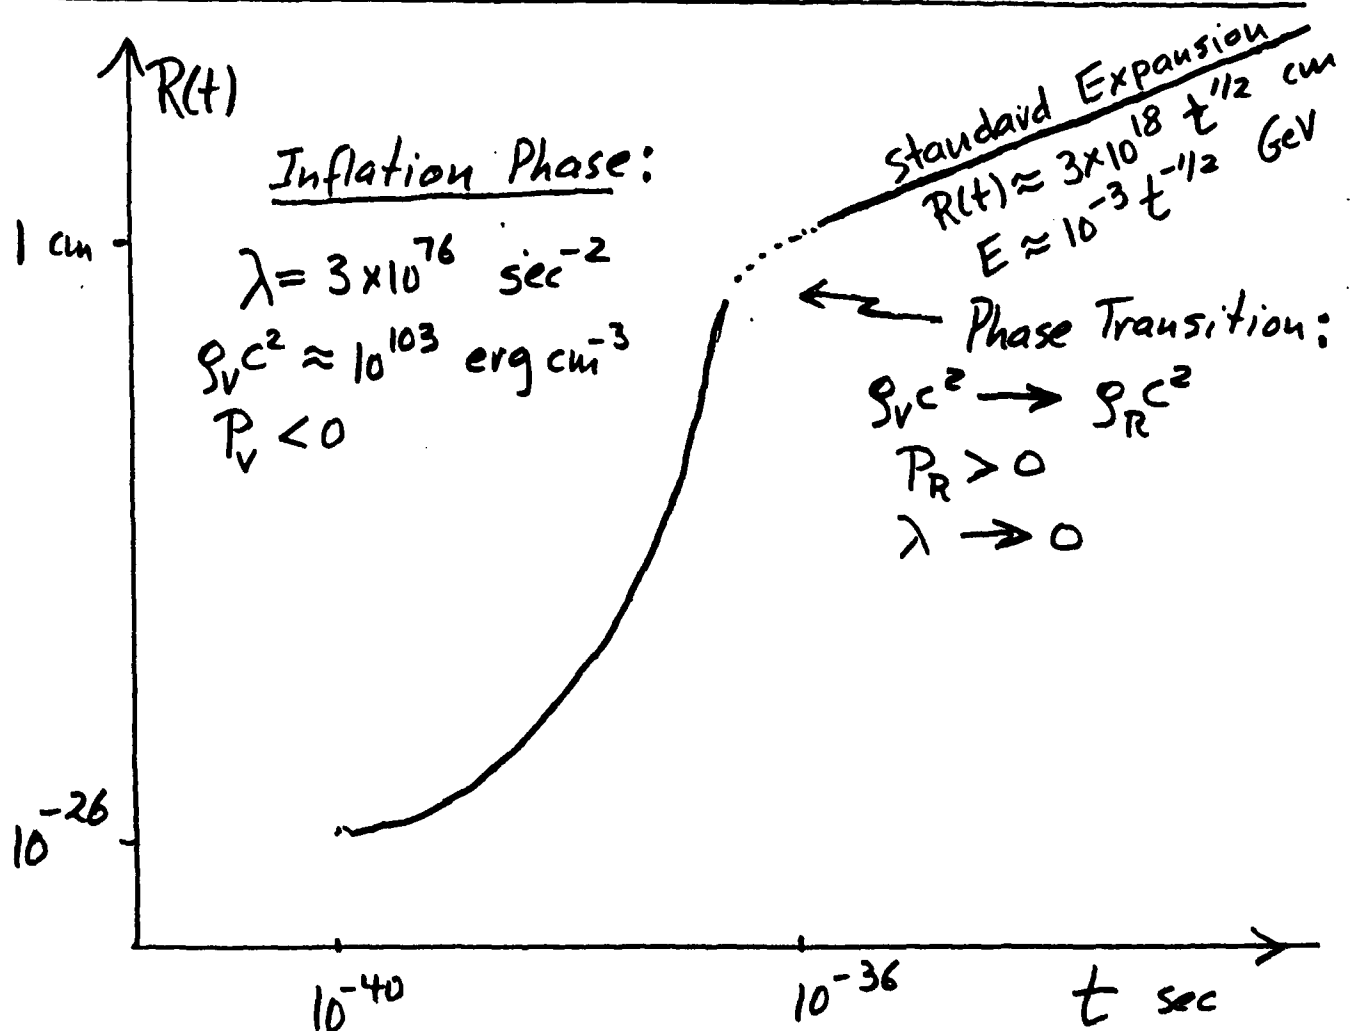 R(t)
Inflation Phase:
λ = 3×10⁷⁶ sec⁻²
ρ_V c² ≈ 10¹⁰³ erg cm⁻³
P_V < 0
Standard Expansion
R(t) ≈ 3×10¹⁸ t^{1/2} cm
E ≈ 10⁻³ t^{-1/2} GeV
1 cm
Phase Transition:
ρ_V c² → ρ_R c²
P_R > 0
λ → 0
10⁻²⁶
10⁻⁴⁰
10⁻³⁶
t sec